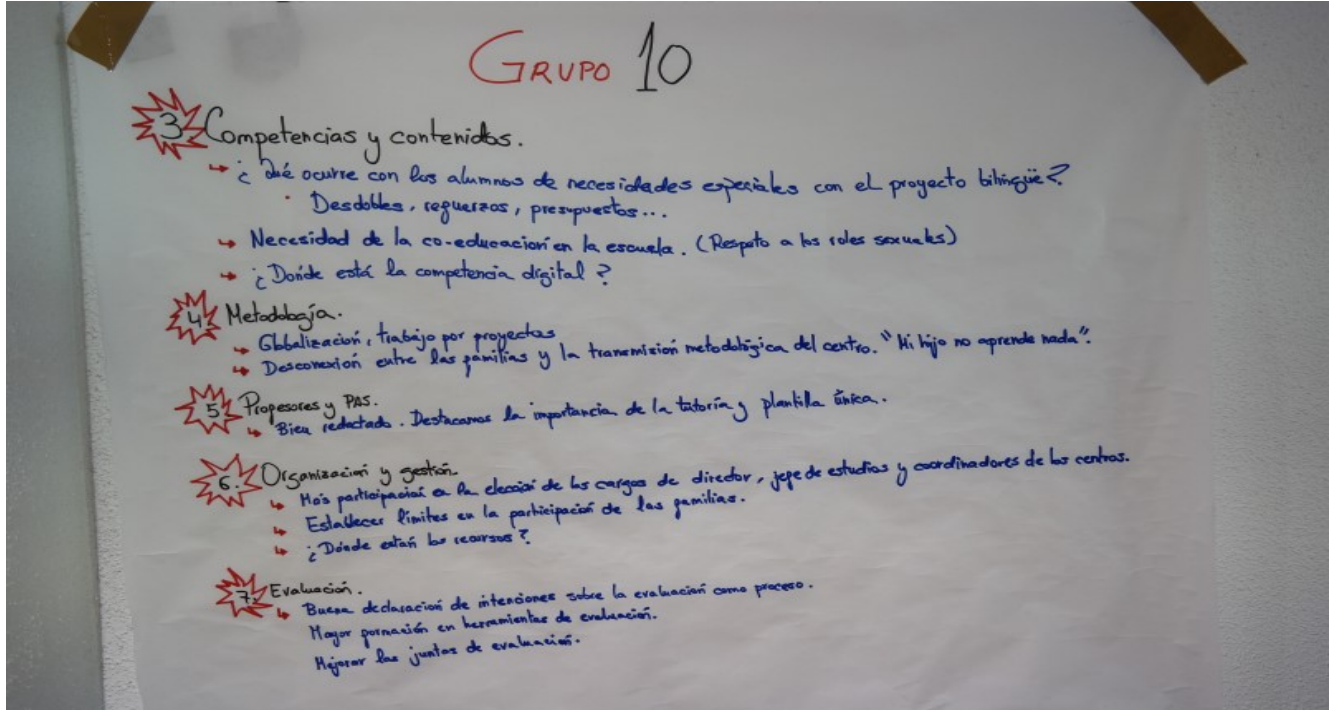 GRUPO 10
3 Competencias y contenidos.
¿Qué ocurre con los alumnos de necesidades especiales con el proyecto bilingüe?
Desdobles, refuerzos, presupuestos...
Necesidad de la co-educación en la escuela. (Respeto a los roles sexuales)
¿Dónde está la competencia digital?
4 Metodología.
Globalización, trabajo por proyectos
Desconexión entre las familias y la transmisión metodológica del centro. "Mi hijo no aprende nada".
5 Profesores y PAS.
Bien redactado. Destacamos la importancia de la tutoría y plantilla única.
6. Organización y gestión.
Más participación en la elección de los cargos de director, jefe de estudios y coordinadores de los centros.
Establecer límites en la participación de las familias.
¿Dónde están los recursos?
7. Evaluación.
Buena declaración de intenciones sobre la evaluación como proceso.
Mayor formación en herramientas de evaluación.
Mejorar las juntas de evaluación.